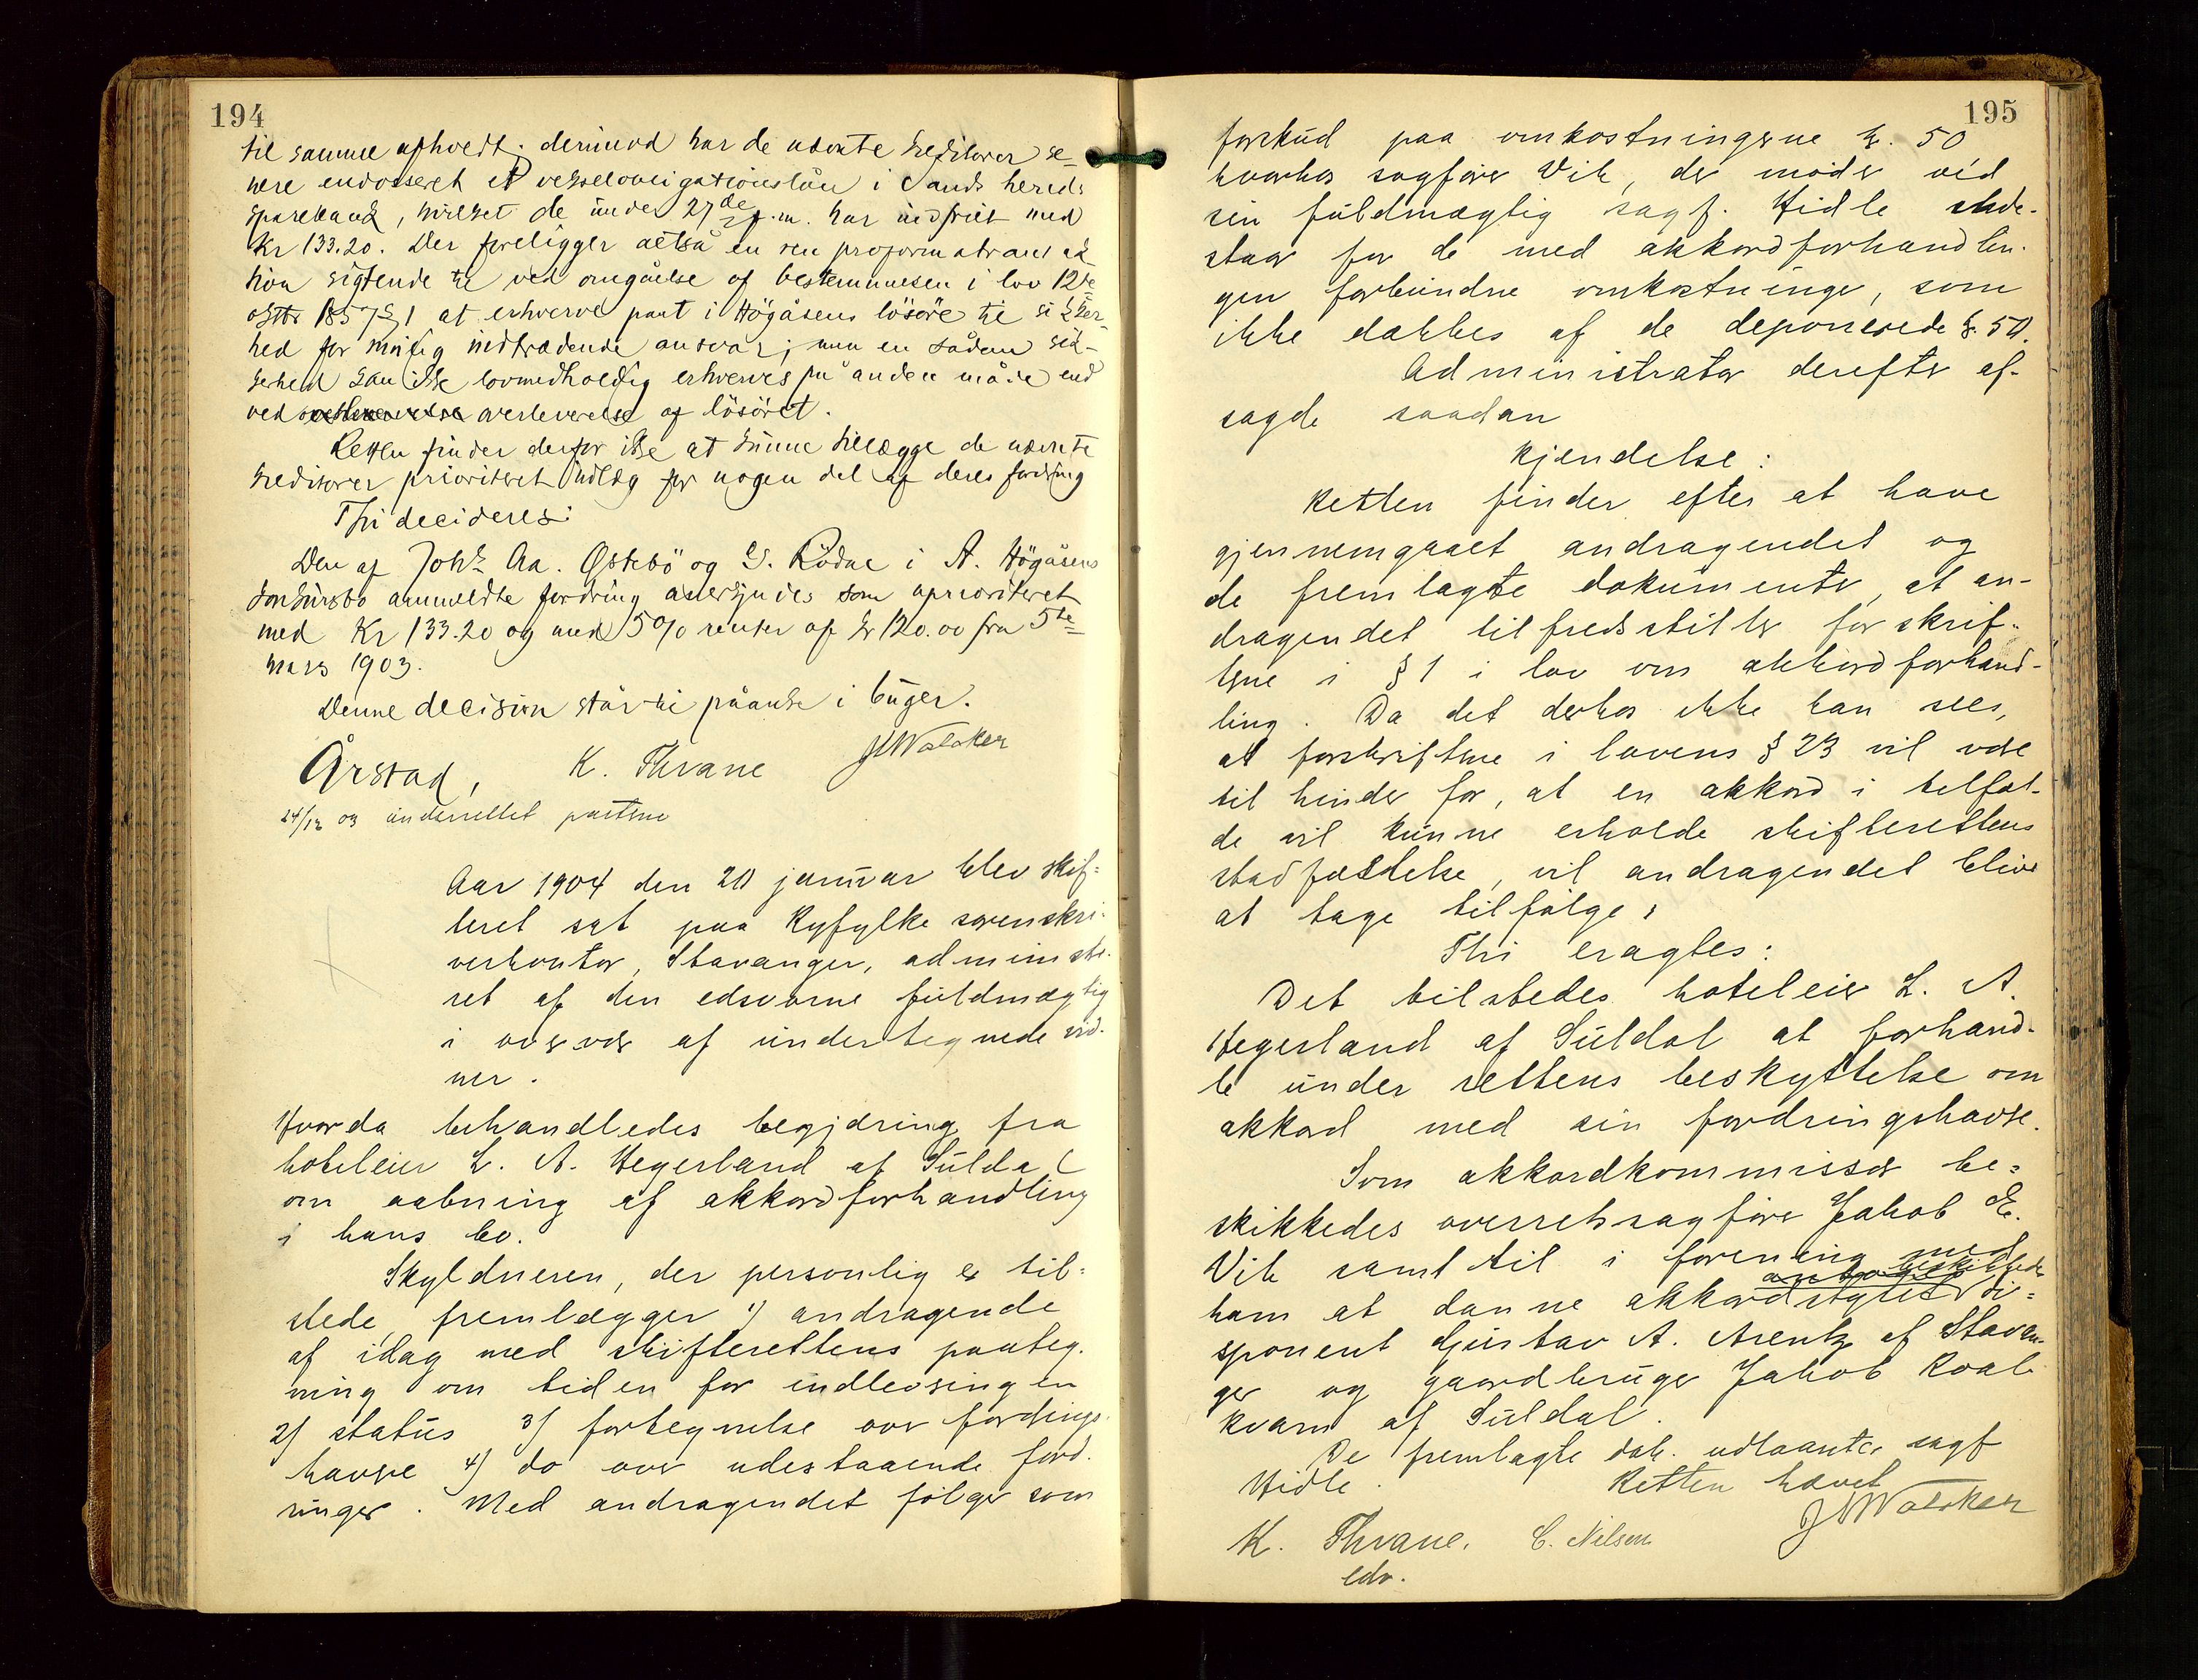 194
til samme ophørt; derimod har de nævnte kreditorer se-
nere endosseret et vekselobligationslån i Sands hereds
sparebank, hvilket de under 27de f. m. har indfriet med
Kr 133.20. Der foreligger altså en ren proforma transak-
tion sigtende til ved omgåelse af bestemmelsen i lov 12te
oktbr 1857 § 1 at erhverve pant i Högåsens lösöre til sikker-
hed for mulig indtrædende ansvar; men en sådan sik-
kerhed kan ikke lovmedholdig erhverves på anden måde end
ved overleverelse af lösöret.
Retten finder derfor ikke at kunne tillægge de nævnte
kreditorer prioriteret udlæg for nogen del af deres fordring
Thi decideres:
Den af Johs Aa. Østebö og G. Rödne i A. Högåsens
konkursbo anmeldte fordring anerkjendes som uprioriteret
med Kr 133.20 og med 5% renter af kr 120.00 fra 5te
mars 1903.
Denne decision står til påanke i 6 uger.
Årstad, K. Thrane JWalcker
24/12 03 underrettet parterne
Aar 1904 den 20 januar blev skif-
teret sat paa Ryfylke sorenskri-
verkontor, Stavanger, administre-
ret af den edsvorne fuldmægtig
i overvær af undertegnede vid-
ner.
Hvorda behandledes begjæring fra
hoteleier L. A. Hegerland af Suldal
om aabning af akkordforhandling
i hans bo.
Skyldneren, der personlig er til-
stede, fremlægger 1) andragende
af idag med skifterettens paateg-
ning om tiden for indleveringen
2) status 3) fortegnelse over fordrings-
havere 4) do over udestaaende ford-
ringer. Med andragendet følger som
195
forskud paa omkostningerne kr. 50
hvorhos sagfører Vik, der møder ved
sin fuldmægtig sagf. Hidle inde-
staar for de med akkordforhandlin-
gen forbundne omkostninger, som
ikke dækkes af de deponerede kr. 50.
Administrator derefter af-
sagde saadan
Kjendelse:
Retten finder efter at have
gjennemgaaet andragendet og
de fremlagte dokumenter, at an-
dragendet tilfredsstiller forskrif-
terne i § 1 i lov om akkordforhand-
ling. Da det derhos ikke kan sees,
at forskrifterne i lovens § 23 vil være
til hinder for, at en akkord i tilfæl-
de vil kunne erholde skifterettens
stadfæstelse, vil andragendet blive
at tage tilfølge,
Thi eragtes:
Det tilstedes hoteleier L. A.
Hegerland af Suldal at forhand-
le under rettens beskyttelse om
akkord med sin fordringshavere.
Som akkordkommissær be-
skikkedes overretssagfører Jakob E.
Vik samt til i forening med
beskikkede
ham at danne akkordstyret di-
sponent Gustav A. Arentz af Stavan-
ger og gaardbruger Jakob Roal-
kvam af Suldal.
De fremlagte dok. udlaantes sagf
Hidle. Retten hævet
JWalcker
K. Thrane. C. Nilsen
edv.